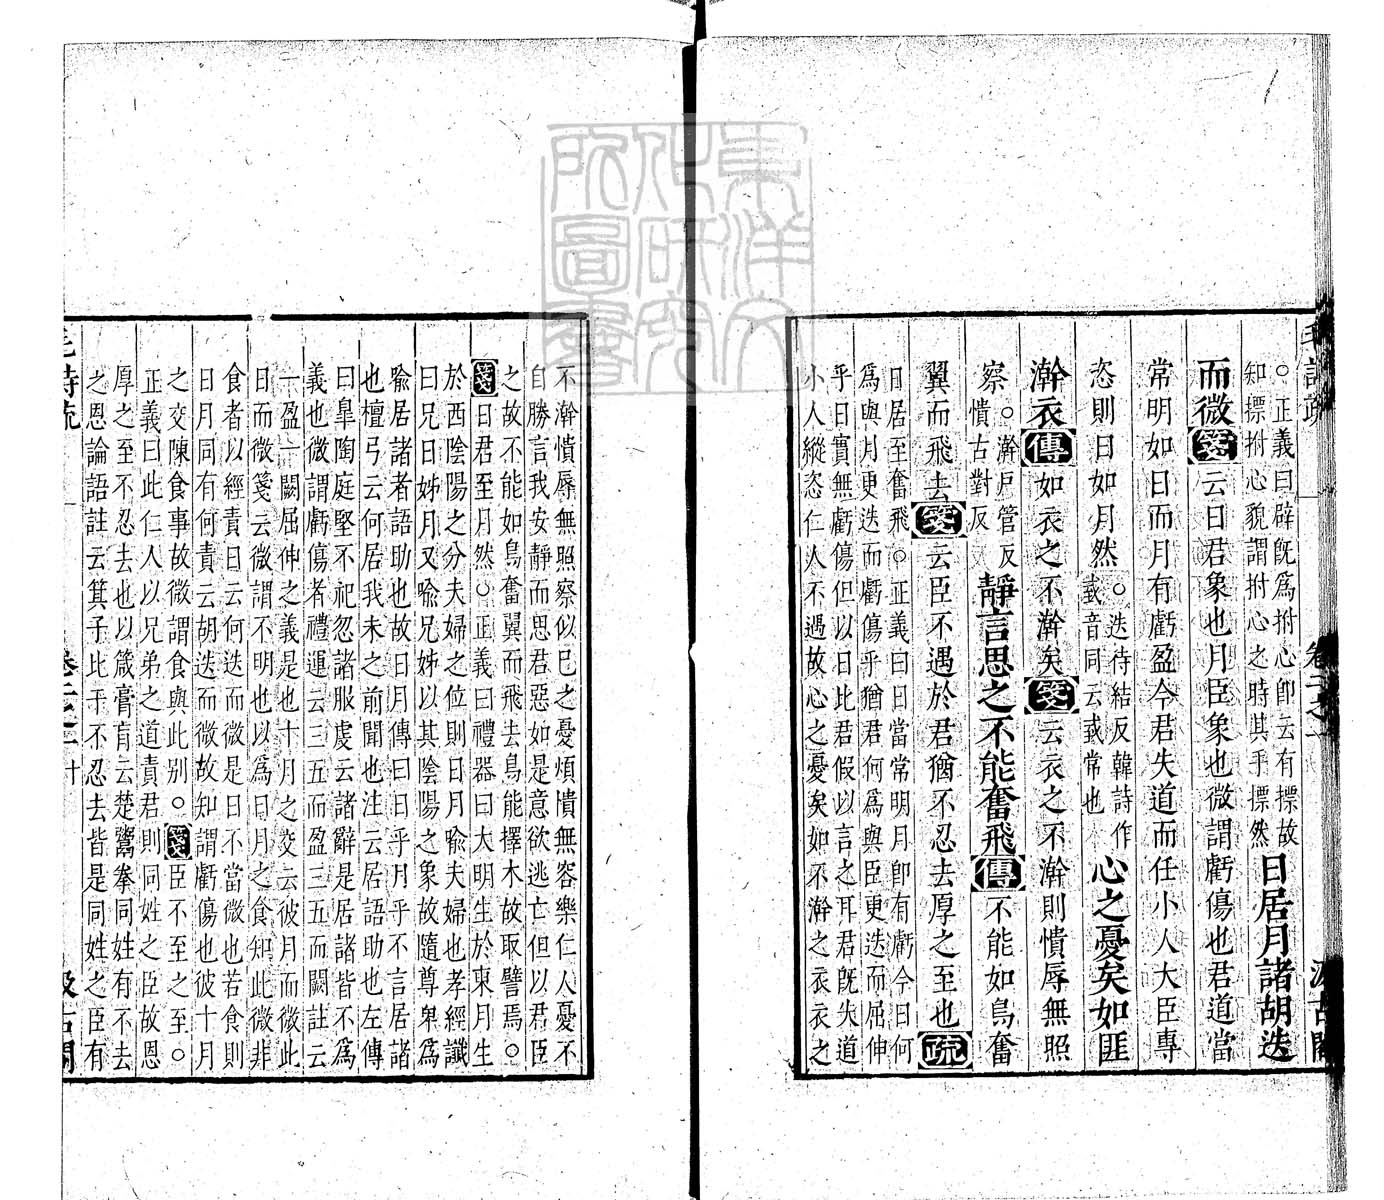 毛詩疏 卷二之一 汲古閣
○正義曰辟既爲拊心卽云有摽故
知摽拊心貌謂拊心之時其手摽然
日居月諸胡迭
而微箋云日君象也月臣象也微謂虧傷也君道當
常明如日而月有虧盈今君失道而任小人大臣專
恣則日如月然
○迭待結反韓詩作
㦶音同云㦶常也
心之憂矣如匪
澣衣傳如衣之不澣矣箋云衣之不澣則憒辱無照
察
○澣戶管反
憒古對反
靜言思之不能奮飛傳不能如鳥奮
翼而飛去箋云臣不遇於君猶不忍去厚之至也疏
日居至奮飛○正義曰日當常明月卽有虧今日何
爲與月更迭而虧傷乎猶君何爲與臣更迭而屈伸
乎日實無虧傷但以日比君假以言之耳君旣失道
小人縱恣仁人不遇故心之憂矣如不澣之衣衣之
不澣憒辱無照察似已之憂煩憒無容樂仁人憂不
自勝言我安靜而思君惡如是意欲逃亡但以君臣
之故不能如鳥奮翼而飛去鳥能擇木故取譬焉○
箋日君至月然○正義曰禮器曰大明生於東月生
於西陰陽之分夫婦之位則日月喩夫婦也孝經讖
曰兄日姊月又喩兄姊以其陰陽之象故隨尊畀爲
喩居諸者語助也故日月傳曰日乎月乎不言居諸
也檀弓云何居我未之前聞也注云居語助也左傳
曰臯陶庭堅不祀忽諸服虔云諸辭是居諸皆不爲
義也微謂虧傷者禮運云三五而盈三五而闕註云
一盈一闕屈伸之義是也十月之交云彼月而微此
日而微箋云微謂不明也以爲日月之食知此微非
食者以經責日云何迭而微是日不當微也若食則
日月同有何責云胡迭而微故知謂虧傷也彼十月
之交陳食事故微謂食與此别○箋臣不至之至○
正義曰此仁人以兄弟之道責君則同姓之臣故恩
厚之至不忍去也以箴膏肓云楚鬻拳同姓有不去
之恩論語註云箕子比干不忍去皆是同姓之臣有
毛詩疏 卷二之一 十 汲古閣
東洋文化研究所圖書